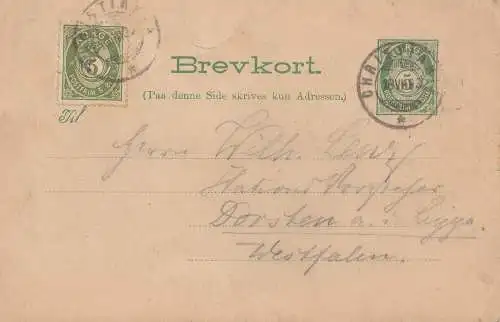 NORGE
5
POSTFRIM
NORGE
5
POSTFRIM
CHRISTIANIA
Brevkort.
(Paa denne Side skrives kun Adressen.)
Til
Herrn Wilh.
Stations Vorsteher
Dorsten a. d. Lippe
Westfalen.